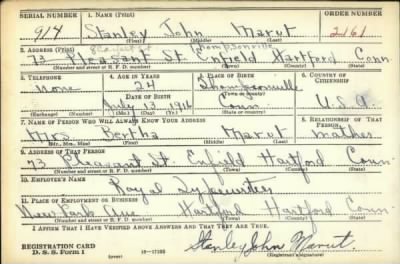 SERIAL NUMBER 1. NAME (Print) ORDER NUMBER
914 Stanley John Marut 2161
(First) (Middle) (Last)
2. ADDRESS (Print) Thompsonville
73 Pleasant St. Enfield Hartford Conn
(Number and street or R. F. D. number) (Town) (County) (State)
3. TELEPHONE 4. AGE IN YEARS 5. PLACE OF BIRTH 6. COUNTRY OF CITIZENSHIP
None 24 Thompsonville
DATE OF BIRTH (Town or county)
July 13 1916 Conn U.S.A.
(Exchange) (Number) (Mo.) (Day) (Yr.) (State or country)
7. NAME OF PERSON WHO WILL ALWAYS KNOW YOUR ADDRESS 8. RELATIONSHIP OF THAT PERSON
Mrs Bertha Marut mother
(Mr., Mrs., Miss) (First) (Middle) (Last)
9. ADDRESS OF THAT PERSON
73 Pleasant St. Enfield Hartford Conn
(Number and street or R. F. D. number) (Town) (County) (State)
10. EMPLOYER'S NAME
Royal Typewriter
11. PLACE OF EMPLOYMENT OR BUSINESS
New Park Ave Hartford Hartford Conn
(Number and street or R. F. D. number) (Town) (County) (State)
I AFFIRM THAT I HAVE VERIFIED ABOVE ANSWERS AND THAT THEY ARE TRUE.
REGISTRATION CARD
D. S. S. Form 1 (over) Stanley John Marut.
(Registrant's signature)